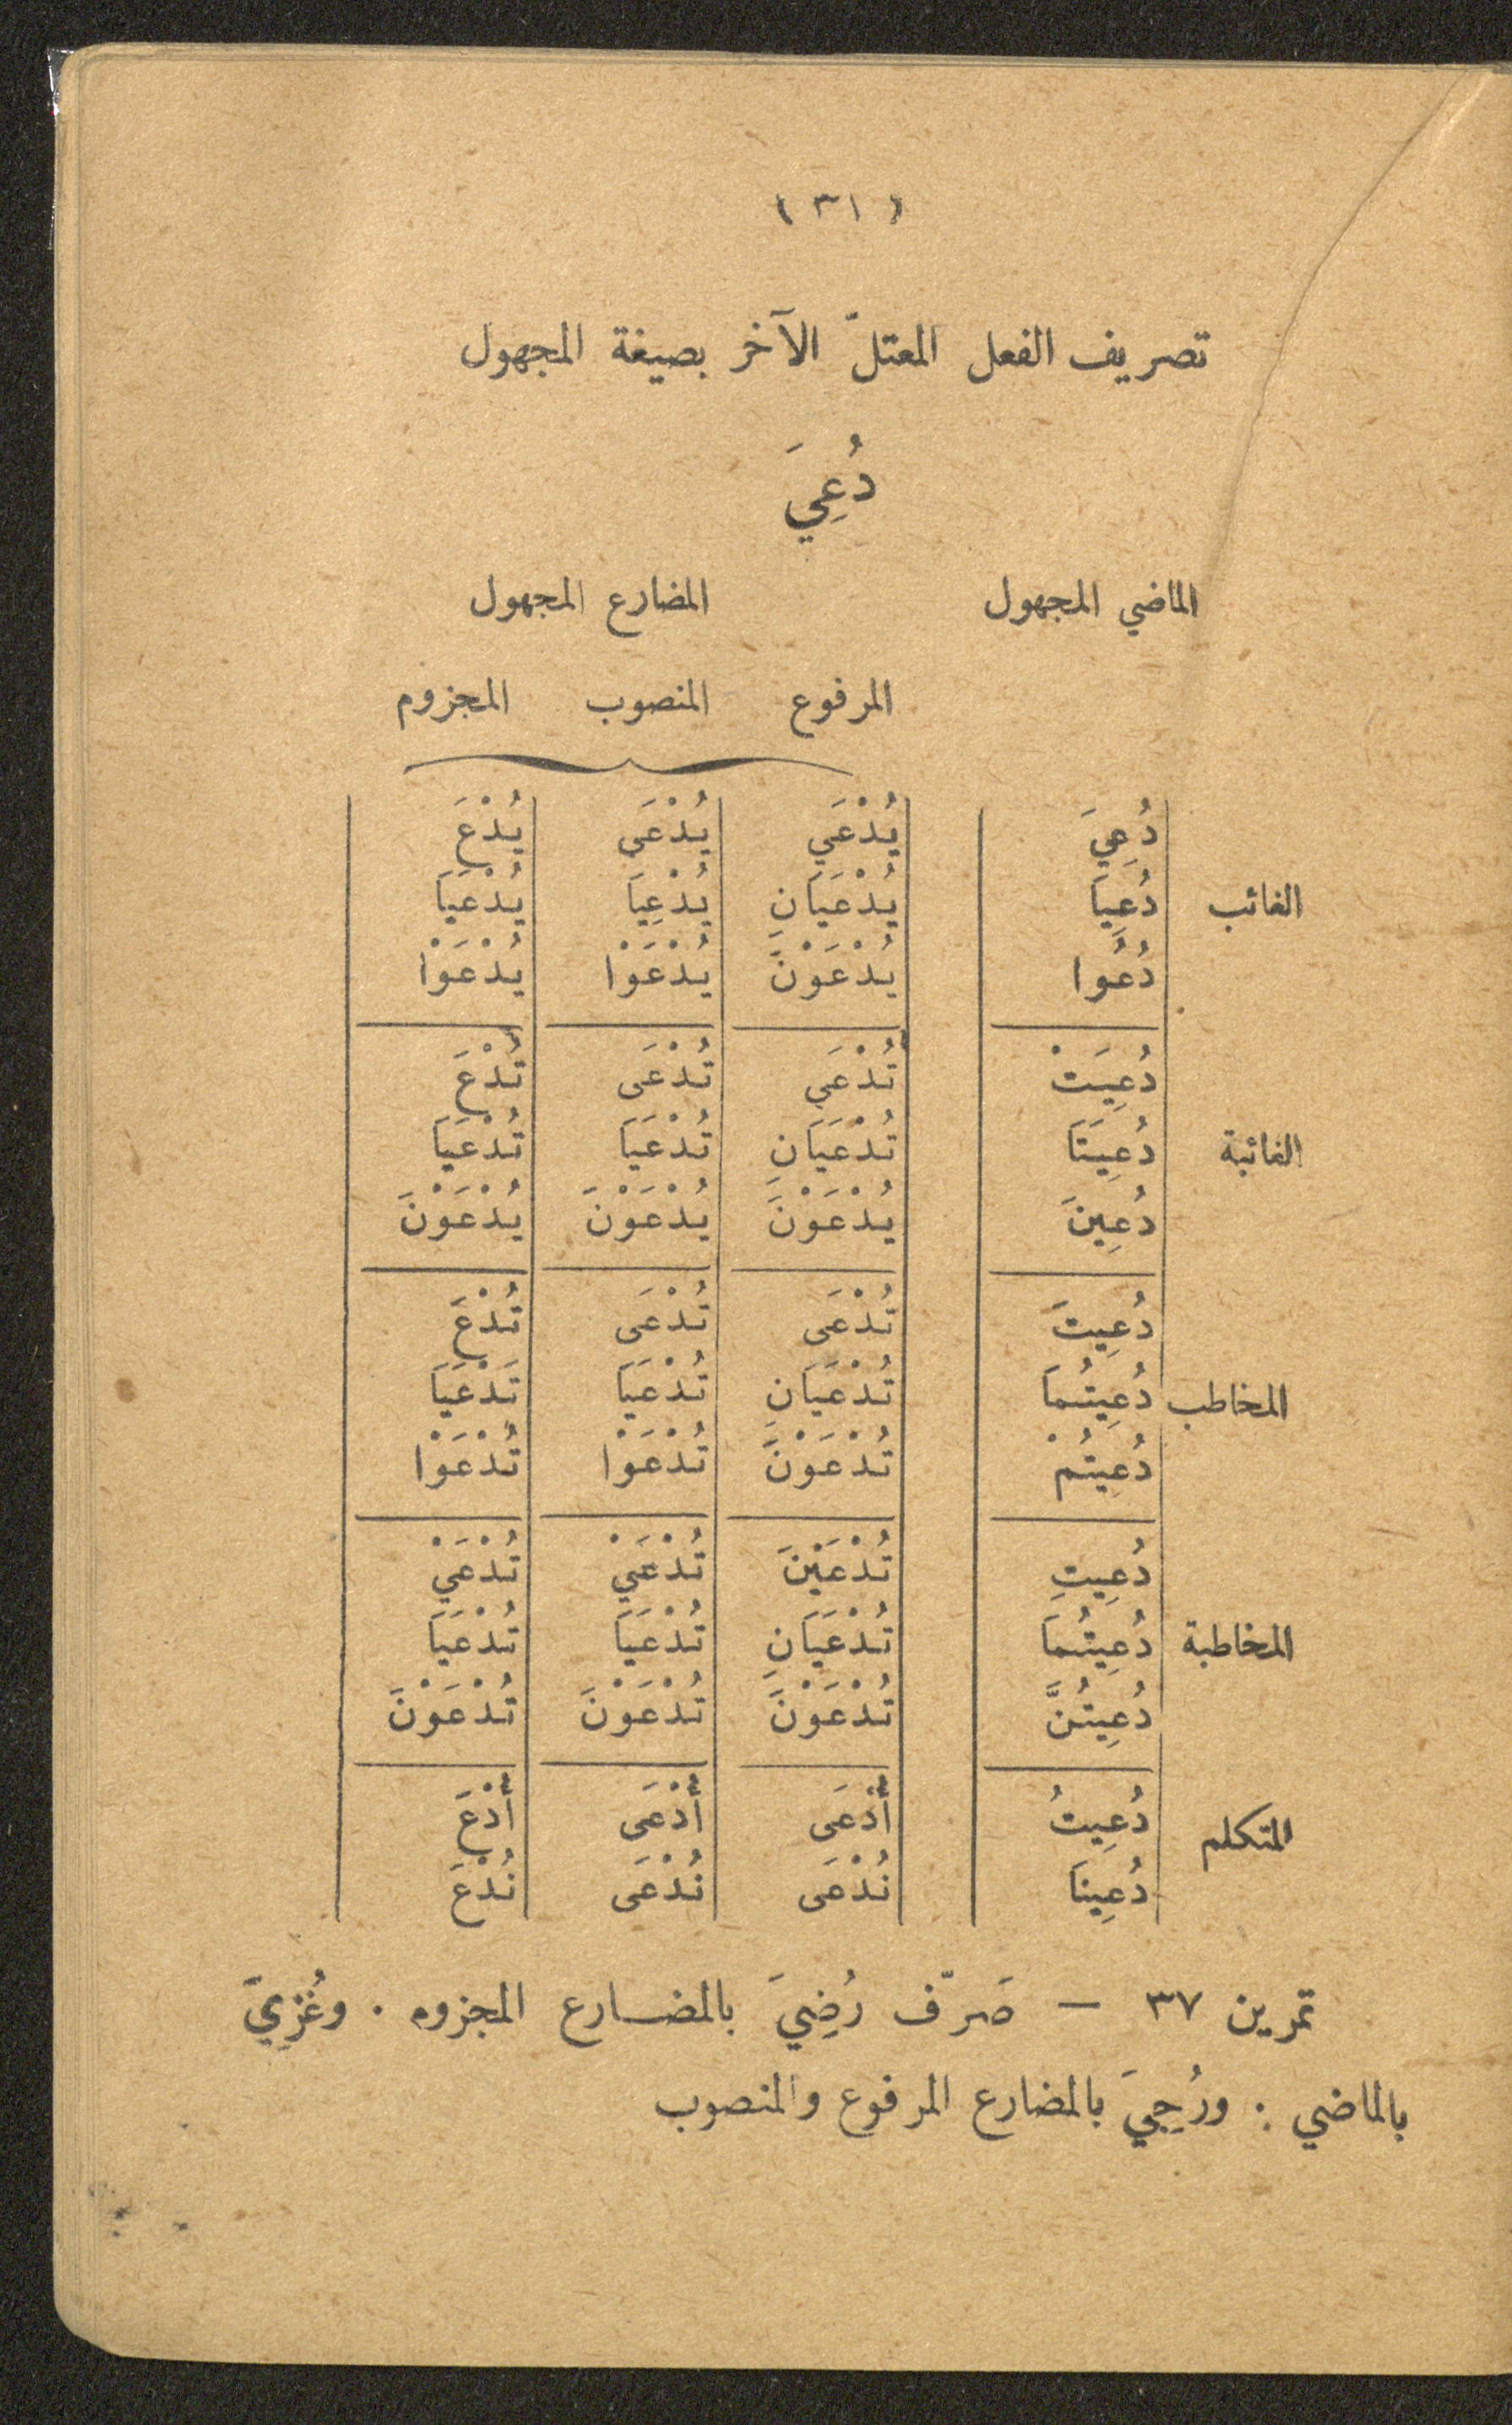 (٣١)
تصريف الفعل المعتلّ الآخر بصيغة المجهول
دُعِيَ
الماضي المجهول المضارع المجهول
المرفوع المنصوب المجزوم
دُعِيَ يُدْعَى يُدْعَى يُدْعَ
الغائب دُعِيَا يُدْعَيَانِ يُدْعِيَا يُدْعَيَا
دُعُوا يُدْعَوْنَ يُدْعَوْا يُدْعَوْا
دُعِيَتْ تُدْعَى تُدْعَى تُدْعَ
الغائبة دُعِيَتَا تُدْعَيَانِ تُدْعَيَا تُدْعَيَا
دُعِينَ يُدْعَوْنَ يُدْعَوْنَ يُدْعَوْنَ
دُعِيتَ تُدْعَى تُدْعَى تُدْعَ
المخاطب دُعِيتُمَا تُدْعَيَانِ تُدْعَيَا تَدْعَيَا
دُعِيتُمْ تُدْعَوْنَ تُدْعَوْا تُدْعَوْا
دُعِيتِ تُدْعَيْنَ تُدْعَيْ تُدْعَيْ
المخاطبة دُعِيتُمَا تُدْعَيَانِ تُدْعَيَا تُدْعَيَا
دُعِيتُنَّ تُدْعَوْنَ تُدْعَوْنَ تُدْعَوْنَ
المتكلم دُعِيتُ أُدْعَى أُدْعَى أُدْعَ
دُعِينَا نُدْعَى نُدْعَى نُدْعَ
تمرين ٣٧ — صَرّف رُضِيَ بالمضارع المجزوم . وغُزِيَ
بالماضي . ورُجِيَ بالمضارع المرفوع والمنصوب